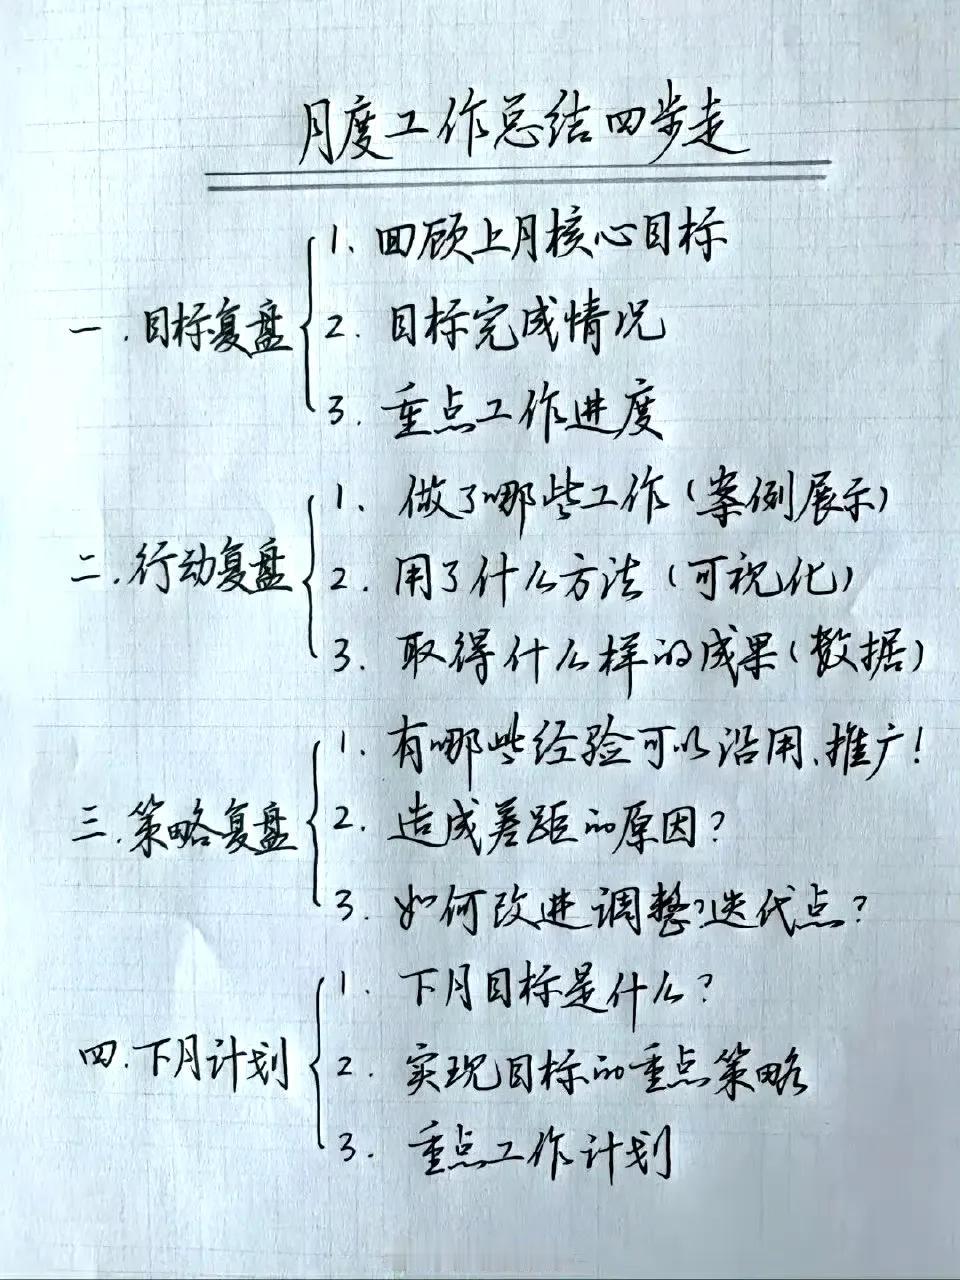 月度工作总结四步走
一.目标复盘
1、回顾上月核心目标
2.目标完成情况
3.重点工作进度
二.行动复盘
1、做了哪些工作(案例展示)
2.用了什么方法(可视化)
3.取得什么样的成果(数据)
三.策略复盘
1.有哪些经验可以沿用、推广!
2.造成差距的原因?
3.如何改进调整?迭代点?
四.下月计划
1.下月目标是什么?
2.实现目标的重点策略
3.重点工作计划